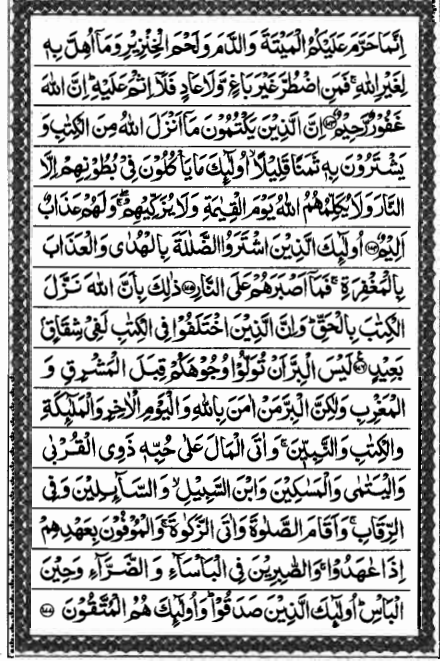 اِنَّمَا حَرَّمَ عَلَيْكُمُ الْمَيْتَةَ وَالدَّمَ وَلَحْمَ الْخِنْزِيْرِ وَمَاۤ اُهِلَّ بِهٖ
لِغَيْرِ اللّٰهِ ۚ فَمَنِ اضْطُرَّ غَيْرَ بَاغٍ وَّلَا عَادٍ فَلَاۤ اِثْمَ عَلَيْهِ ؕ اِنَّ اللّٰهَ
غَفُوْرٌ رَّحِيْمٌ ﴿۱۷۳﴾ اِنَّ الَّذِيْنَ يَكْتُمُوْنَ مَاۤ اَنْزَلَ اللّٰهُ مِنَ الْكِتٰبِ وَ
يَشْتَرُوْنَ بِهٖ ثَمَنًا قَلِيْلًا ۙ اُولٰٓئِكَ مَا يَاْكُلُوْنَ فِيْ بُطُوْنِهِمْ اِلَّا
النَّارَ وَلَا يُكَلِّمُهُمُ اللّٰهُ يَوْمَ الْقِيٰمَةِ وَلَا يُزَكِّيْهِمْ ۖۚ وَلَهُمْ عَذَابٌ
اَلِيْمٌ ﴿۱۷۴﴾ اُولٰٓئِكَ الَّذِيْنَ اشْتَرَوُا الضَّلٰلَةَ بِالْهُدٰى وَالْعَذَابَ
بِالْمَغْفِرَةِ ۚ فَمَاۤ اَصْبَرَهُمْ عَلَى النَّارِ ﴿۱۷۵﴾ ذٰلِكَ بِاَنَّ اللّٰهَ نَزَّلَ
الْكِتٰبَ بِالْحَقِّ ؕ وَاِنَّ الَّذِيْنَ اخْتَلَفُوْا فِي الْكِتٰبِ لَفِيْ شِقَاقٍۭ
بَعِيْدٍ ﴿۱۷۶﴾ لَيْسَ الْبِرَّ اَنْ تُوَلُّوْا وُجُوْهَكُمْ قِبَلَ الْمَشْرِقِ وَ
الْمَغْرِبِ وَلٰكِنَّ الْبِرَّ مَنْ اٰمَنَ بِاللّٰهِ وَالْيَوْمِ الْاٰخِرِ وَالْمَلٰٓئِكَةِ
وَالْكِتٰبِ وَالنَّبِيّٖنَ ۚ وَاٰتَى الْمَالَ عَلٰى حُبِّهٖ ذَوِي الْقُرْبٰى
وَالْيَتٰمٰى وَالْمَسٰكِيْنَ وَابْنَ السَّبِيْلِ ۙ وَالسَّآئِلِيْنَ وَفِي
الرِّقَابِ ۚ وَاَقَامَ الصَّلٰوةَ وَاٰتَى الزَّكٰوةَ ۚ وَالْمُوْفُوْنَ بِعَهْدِهِمْ
اِذَا عٰهَدُوْا ۚ وَالصّٰبِرِيْنَ فِي الْبَاْسَآءِ وَ الضَّرَّآءِ وَحِيْنَ
الْبَاْسِ ؕ اُولٰٓئِكَ الَّذِيْنَ صَدَقُوْا ؕ وَاُولٰٓئِكَ هُمُ الْمُتَّقُوْنَ ﴿۱۷۷﴾